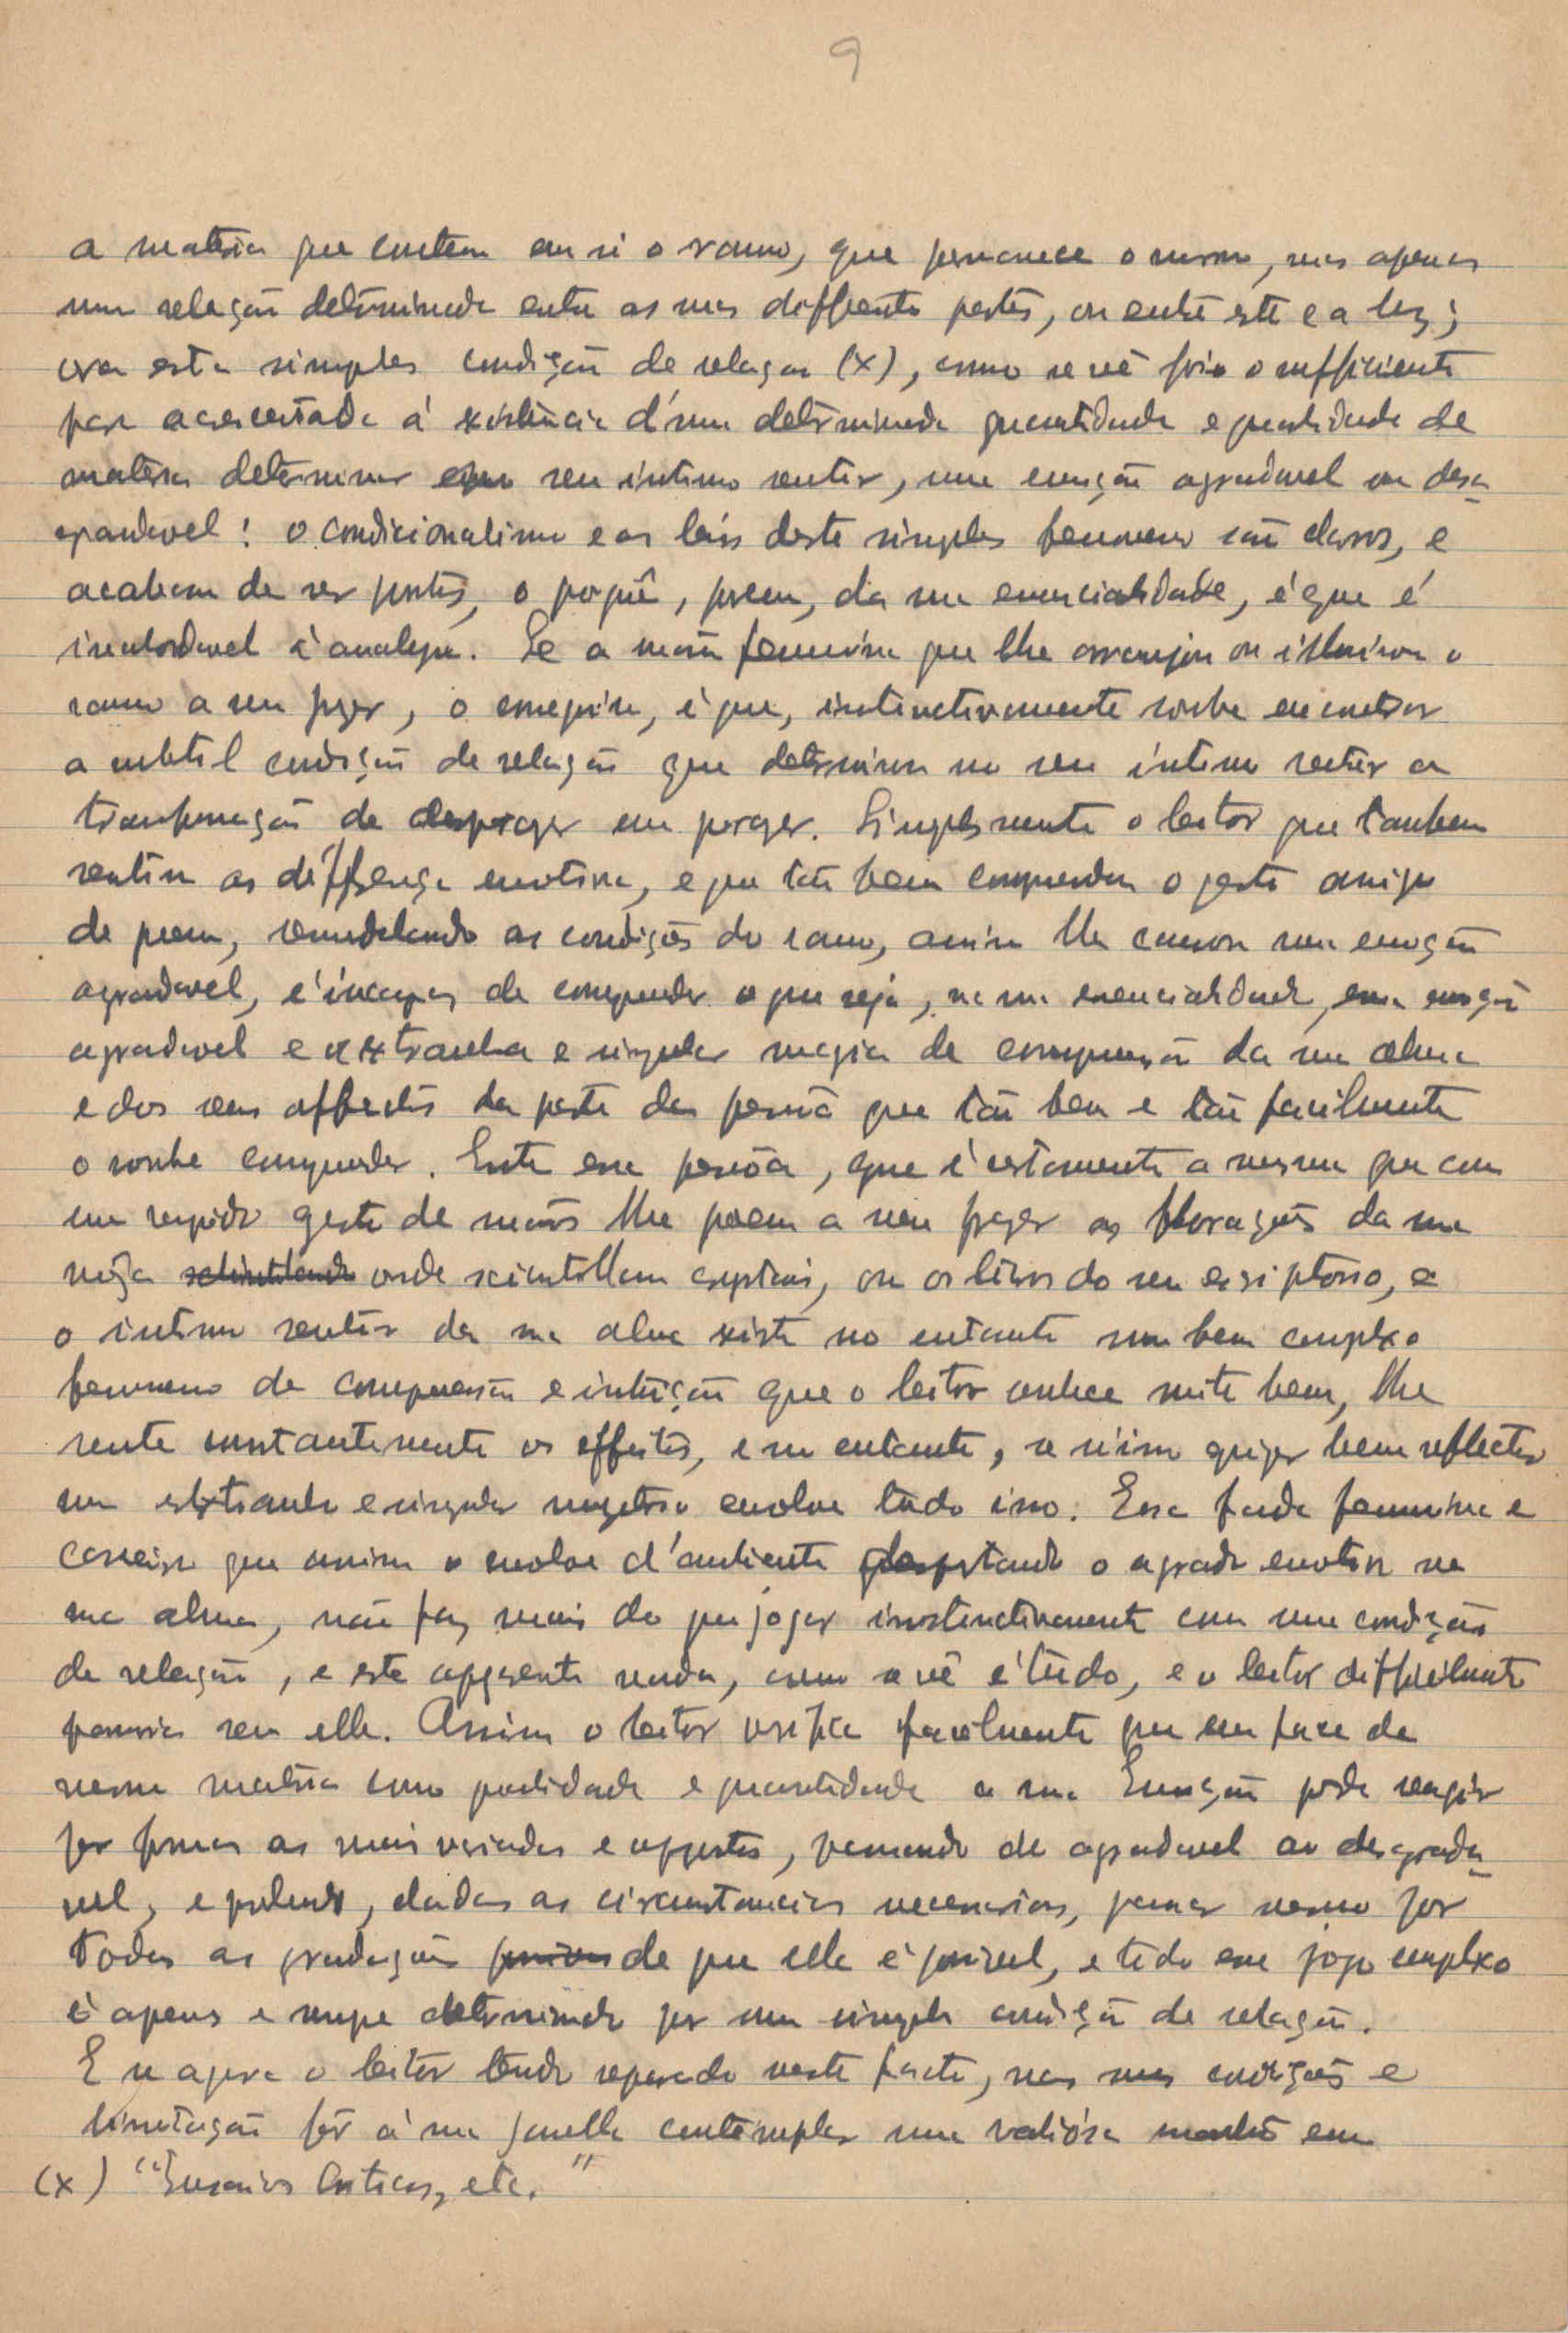 9
a materia que contem em si o ramo, que permanece o mesmo, mas apenas
uma relação determinada entre as suas differentes partes, ou entre este e a luz;
ora esta simples condição de relação (x), como se vê foi o sufficiente
para accrescentada á existencia d'uma determinada quantidade e qualidade de
materia determinar seu intimo sentir, uma emoção agradavel ou desa-
gradavel! O condicionalismo e as leis deste simples fenomeno são claros, e
acabam de ser postos, o porquê, porem, da sua essencialidade, é que é
inabordavel á analyse. Se a mão feminina que lhe arranjou ou illuminou o
ramo a seu prazer, o conseguiu, é que, instinctivamente soube encontrar
a subtil condição de relação que determinou no seu intimo sentir a
transformação de desprazer em prazer. Simplesmente o leitor que tambem
sentiu as differença emotiva, e que tão bem comprendeu o gesto amigo
de quem, remodelando as condições do ramo, assim lhe causou uma emoção
agradavel, é incapaz de compreender o que seja, na sua essencialidade, essa emoção
agradavel e a extranha e singular magia de compreensão da sua alma
e dos seus affectos da parte da pessoa que tão bem e tão facilmente
o soube compreender. Entre essa pessôa, que é certamente a mesma que com
um rapido gesto de mãos lhe poem a seu prazer as florações da sua
meza onde scientillam crystais, ou os livros do seu escriptorio, e
o intimo sentir da sua alma existe no entanto um bem complexo
fenomeno de compreensão e intuição que o leitor conhece muito bem, lhe
sente constantemente os effeitos, e no entanto, se n'isso quizer bem reflectir
um extranho e singular mysterio envolve tudo isso. Essa fada feminina e
caseira que assim o envolve d'ambiente despertando o agrado emotivo na
sua alma, não faz mais do que jogar instinctivamente com uma condição
de relação, e este apparente nada, como se vê é tudo, e o leitor difficilmente
passaria sem elle. Assim o leitor verifica facilmente que em face da
mesma materia como qualidade e quantidade a sua Emoção pode reagir
por formas as mais variadas e oppostas, passando de agradavel ao desagrada-
vel, e podendo, dadas as circunstancias necessarias, passar mesmo por
todas as gradações de que ella é possivel, e todo esse jogo complexo
é apenas e sempre determinado por uma simples condição de relação.
E se agora o leitor tendo reparado neste facto, nas suas condições e
limitação fôr á sua janella contemplar uma radiósa manhã em
(x) "Ensaios Criticos, etc."